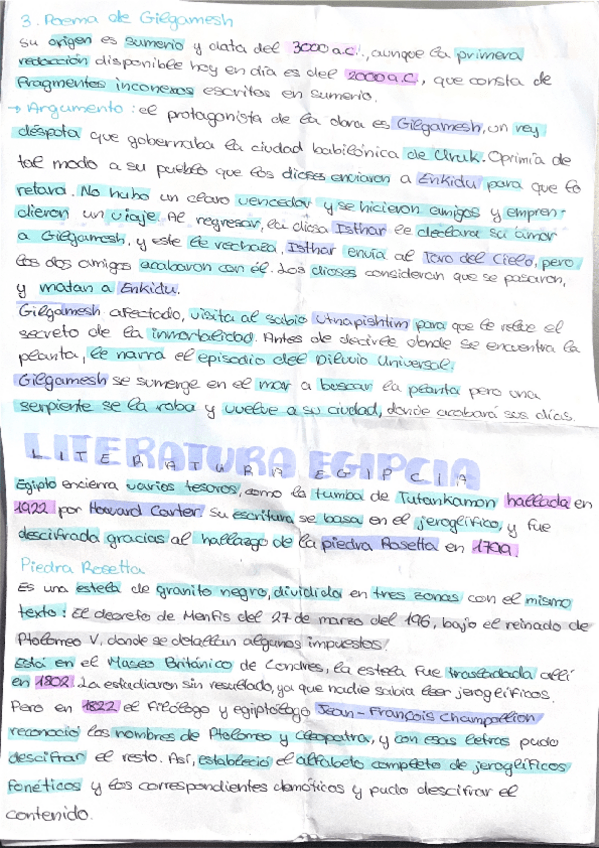 3. Poema de Gilgamesh
Su origen es sumerio y data del 3000 a.C., aunque la primera
redacción disponible hoy en día es del 2000 a.C., que consta de
fragmentos inconexos escritos en sumerio.
→ Argumento: el protagonista de la obra es Gilgamesh, un rey
déspota que gobernaba la ciudad babilónica de Uruk. Oprimía de
tal modo a su pueblo que los dioses enviaron a Enkidu para que lo
retara. No hubo un claro vencedor y se hicieron amigos y empren-
dieron un viaje. Al regresar, la diosa Isthar le declara su amor
a Gilgamesh, y este le rechaza, Isthar envía al Toro del Cielo, pero
los dos amigos acabaron con él. Los dioses consideran que se pasaron,
y matan a Enkidu.
Gilgamesh afectado, visita al sabio Utnapishtim para que le revele el
secreto de la inmortalidad. Antes de decirle donde se encuentra la
planta, le narra el episodio del Diluvio Universal.
Gilgamesh se sumerge en el mar a buscar la planta pero una
serpiente se la roba y vuelve a su ciudad, donde acabará sus días.
LITERATURA EGIPCIA
Egipto encierra varios tesoros, como la tumba de Tutankamon hallada en
1922 por Howard Carter. Su escritura se basa en el jeroglífico, y fue
descifrada gracias al hallazgo de la piedra Rosetta en 1799.
Piedra Rosetta
Es una estela de granito negro, dividida en tres zonas con el mismo
texto: El decreto de Menfis del 27 de marzo del 196, bajo el reinado de
Ptolomeo V, donde se detallan algunos impuestos.
Está en el Museo Británico de Londres, la estela fue trasladada allí
en 1802. La estudiaron sin resultado, ya que nadie sabía leer jeroglíficos.
Pero en 1822 el filólogo y egiptólogo Jean-François Champollion
reconoció los nombres de Ptolomeo y Cleopatra, y con esas letras pudo
descifrar el resto. Así, estableció el alfabeto completo de jeroglíficos
fonéticos y los correspondientes demóticos y pudo descifrar el
contenido.